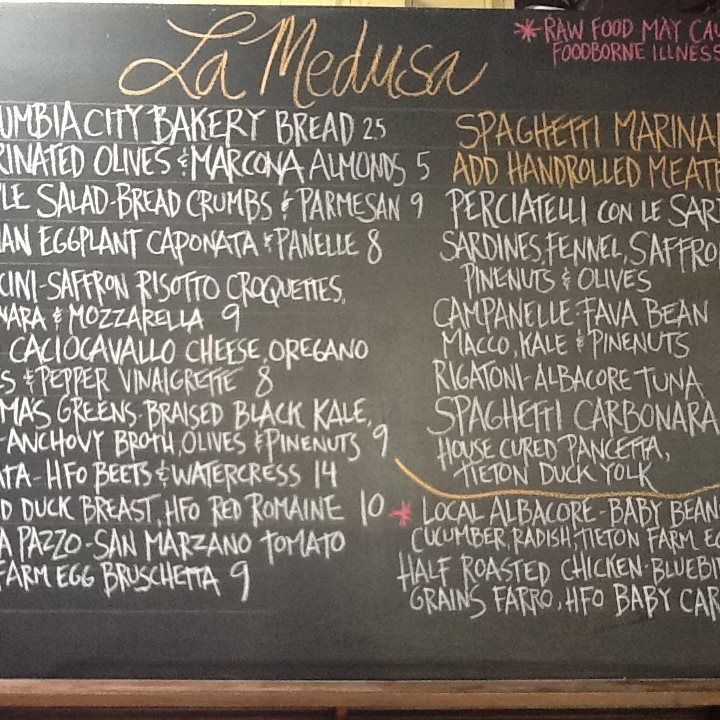 La Medusa
* RAW FOOD MAY CAU
FOODBORNE ILLNESS
UMBIA CITY BAKERY BREAD 25
RINATED OLIVES & MARCONA ALMONDS 5
LE SALAD-BREAD CRUMBS & PARMESAN 9
IAN EGGPLANT CAPONATA & PANELLE 8
CINI-SAFFRON RISOTTO CROQUETTES,
NARA & MOZZARELLA 9
CACIOCAVALLO CHEESE, OREGANO
S & PEPPER VINAIGRETTE 8
MA'S GREENS-BRAISED BLACK KALE,
-ANCHOVY BROTH, OLIVES & PINENUTS 9
ATA-HFO BEETS & WATERCRESS 14
D DUCK BREAST, HFO RED ROMAINE 10
A PAZZO-SAN MARZANO TOMATO
FARM EGG BRUSCHETTA 9
SPAGHETTI MARINA
ADD HANDROLLED MEATB
PERCIATELLI CON LE SAR
SARDINES, FENNEL, SAFFRO
PINENUTS & OLIVES
CAMPANELLE-FAVA BEAN
MACCO, KALE & PINENUTS
RIGATONI-ALBACORE TUNA
SPAGHETTI CARBONARA
HOUSE CURED PANCETTA,
TIETON DUCK YOLK
* LOCAL ALBACORE-BABY BEAN
CUCUMBER, RADISH, TIETON FARM EG
HALF ROASTED CHICKEN-BLUEBI
GRAINS FARRO, HFO BABY CAR